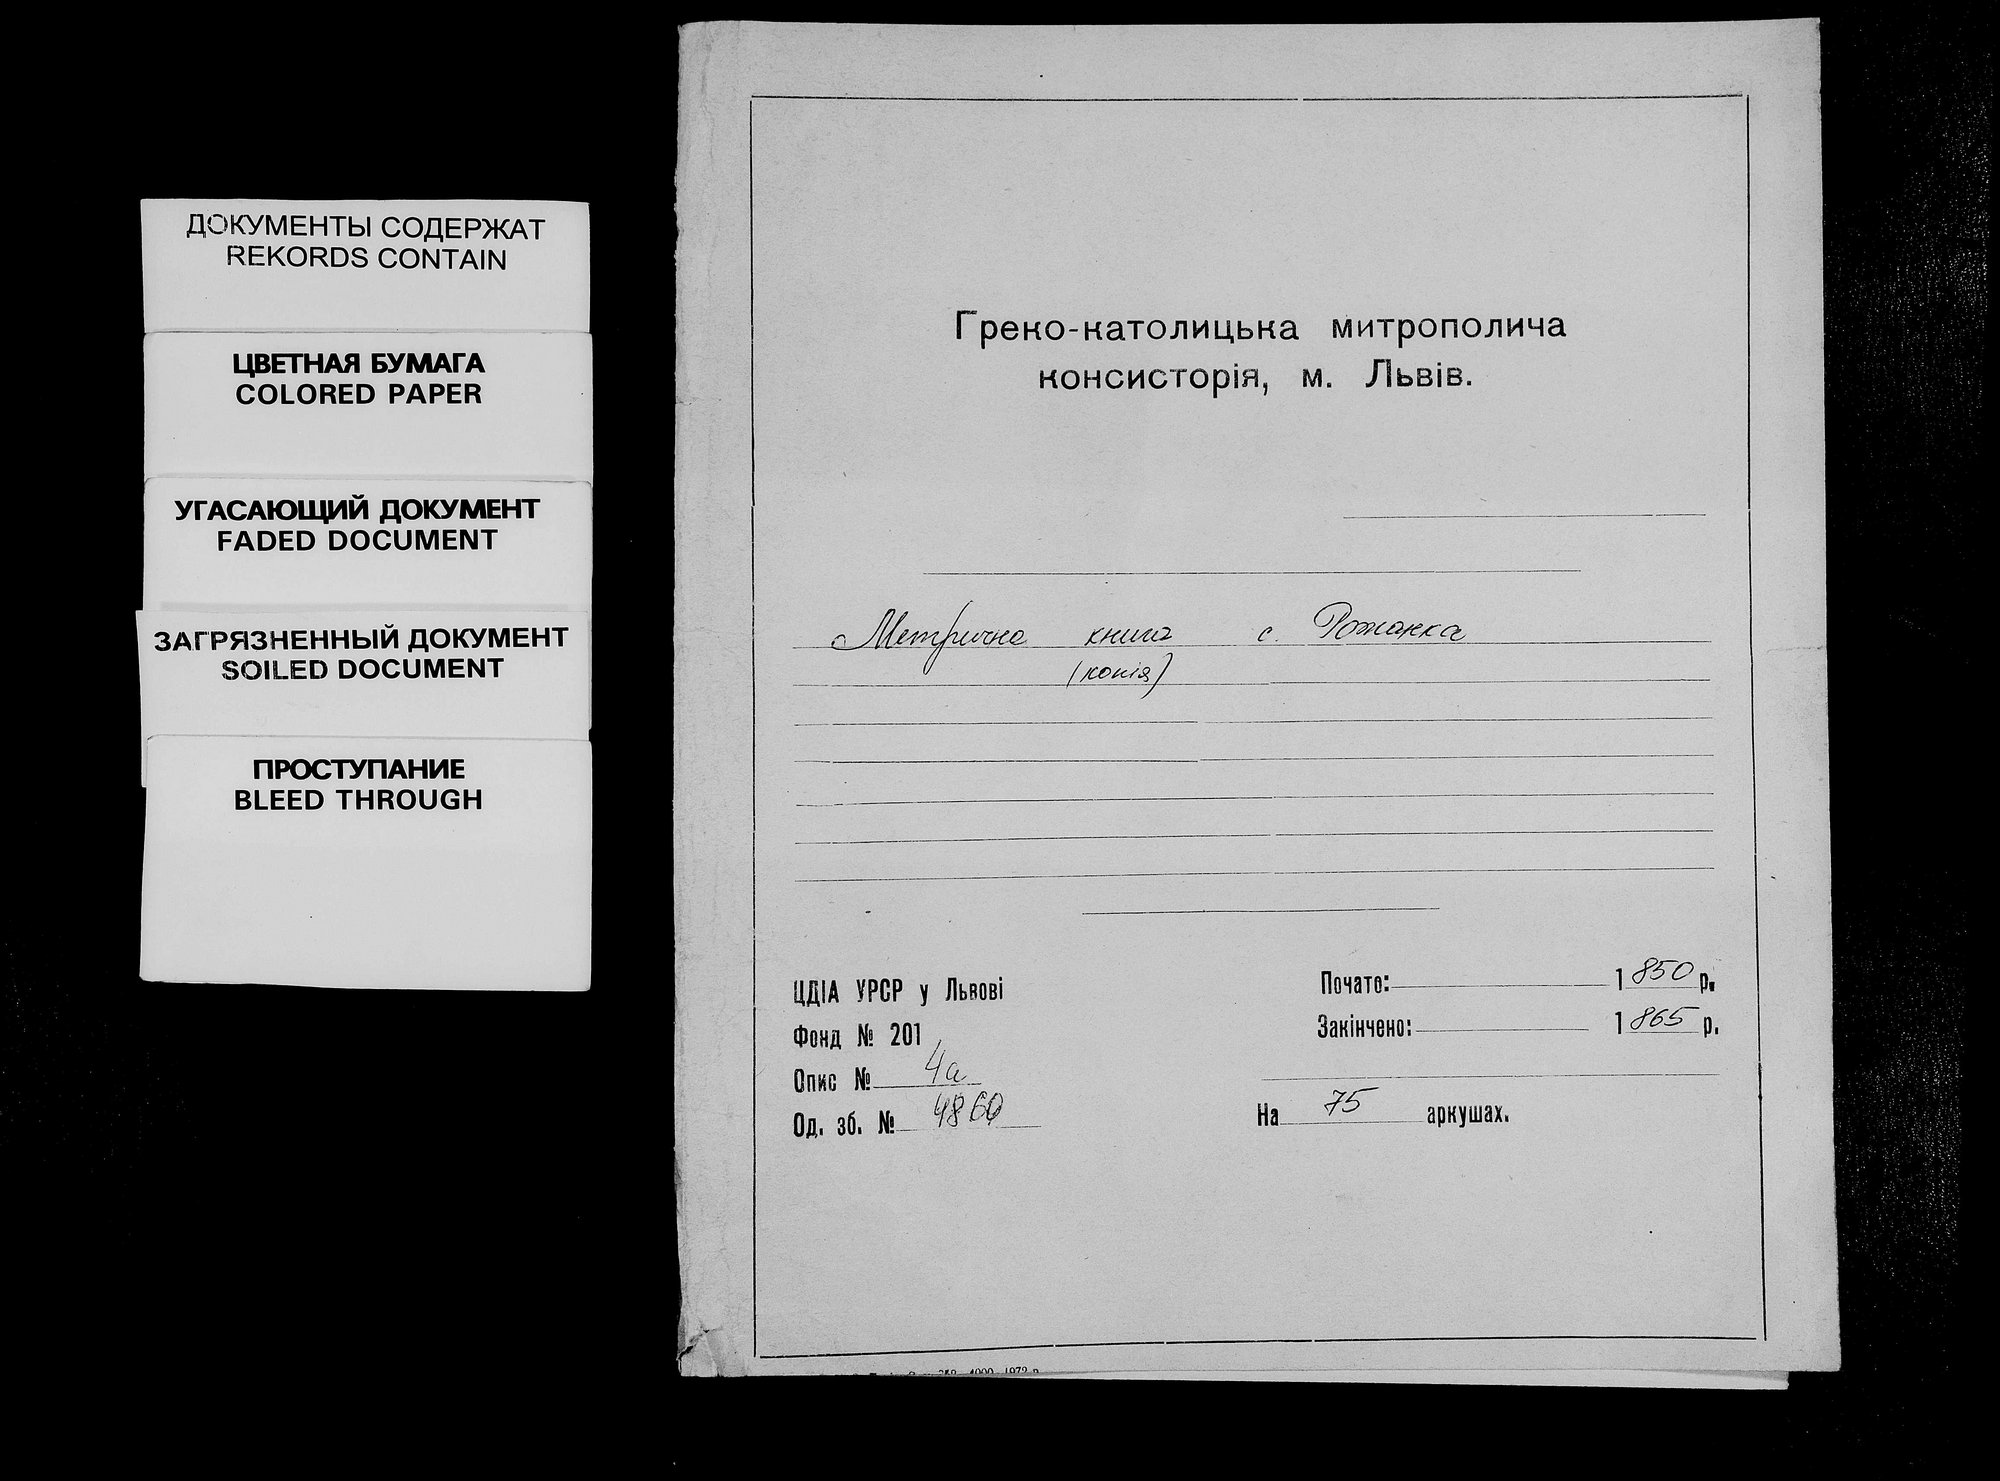 ДОКУМЕНТЫ СОДЕРЖАТ
REKORDS CONTAIN
ЦВЕТНАЯ БУМАГА
COLORED PAPER
УГАСАЮЩИЙ ДОКУМЕНТ
FADED DOCUMENT
ЗАГРЯЗНЕННЫЙ ДОКУМЕНТ
SOILED DOCUMENT
ПРОСТУПАНИЕ
BLEED THROUGH
Греко-католицька митрополича
консисторія, м. Львів.
Метрична книга с. Рожанка
(копія)
ЦДІА УРСР у Львові
Фонд № 201
Опис № 4а
Од. зб. № 4860
Почато: 1850 р.
Закінчено: 1865 р.
На 75 аркушах.